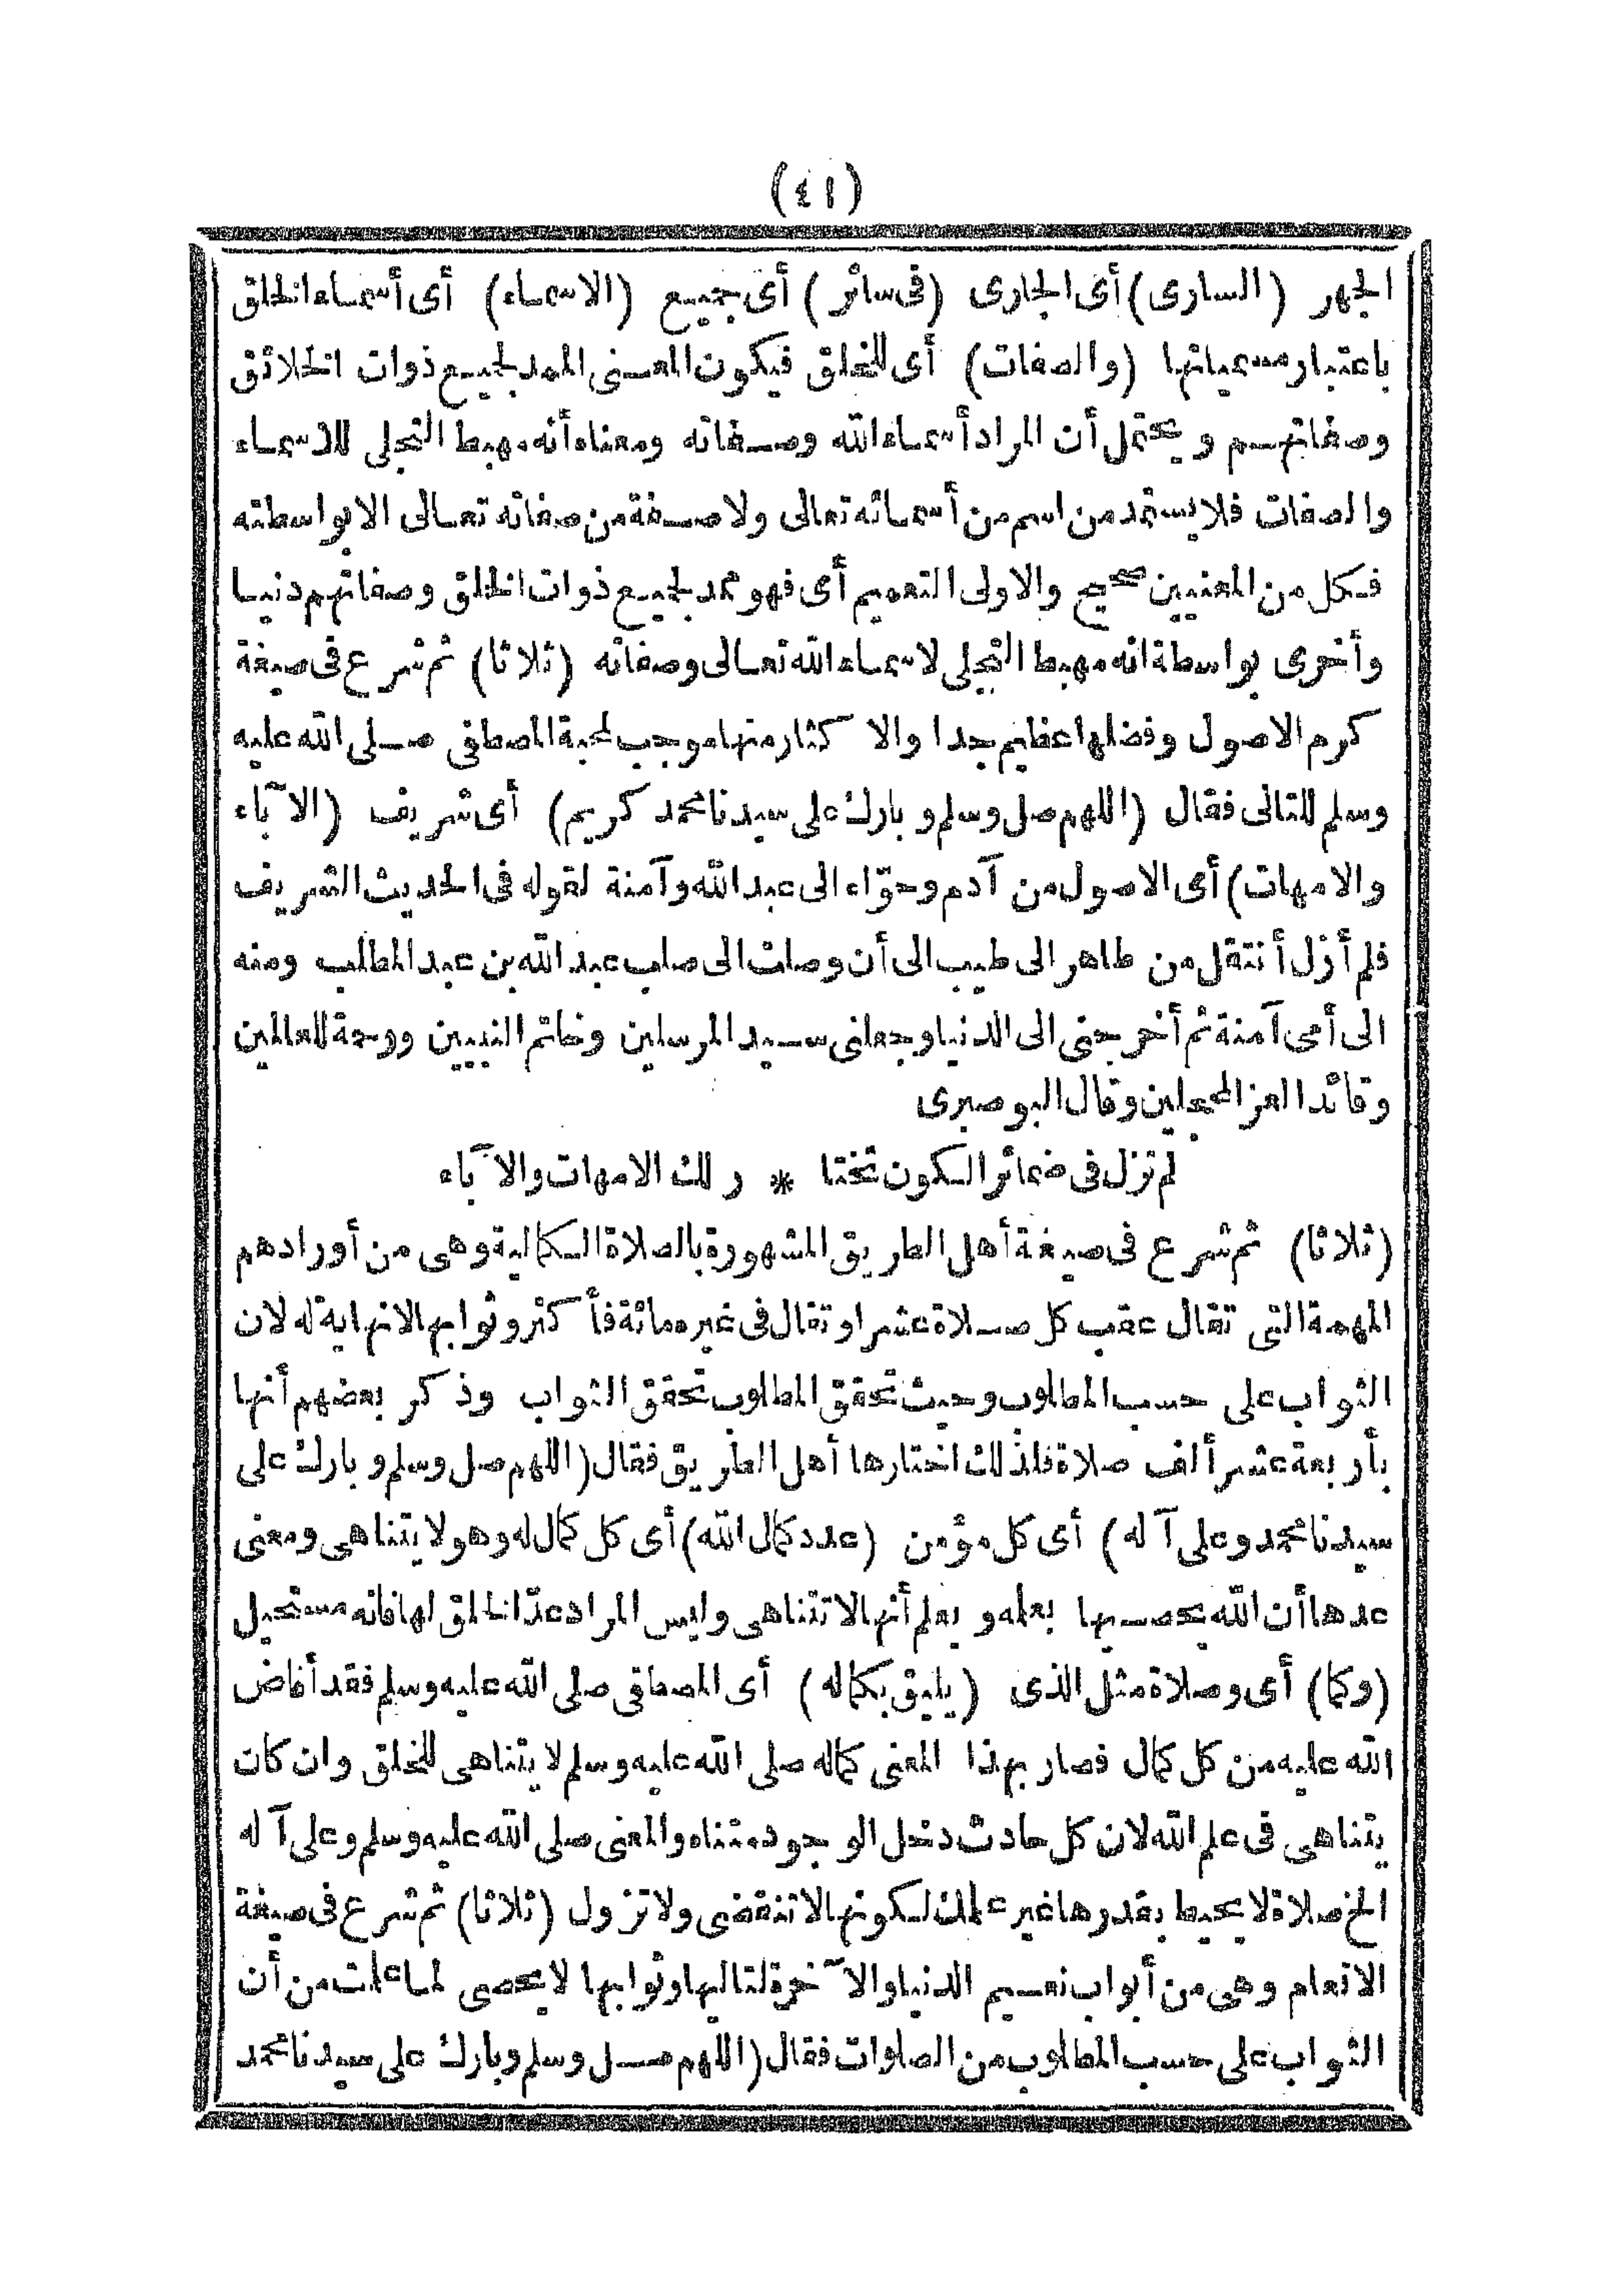 (٤١)
الجهر (السارى) أى الجارى (فى سائر) أى جميع (الاسماء) أى أسماء الخلق
باعتبار مسمياتها (والصفات) أى للخلق فيكون المعنى الممد لجميع ذوات الخلائق
وصفاتهم ويحتمل أن المراد أسماء الله وصفاته ومعناه أنه مهبط التجلى للاسماء
والصفات فلا يستمد من اسم من أسمائه تعالى ولا صفة من صفاته تعالى الا بواسطته
فكل من المعنيين صحيح والاولى التعميم أى فهو ممد لجميع ذوات الخلق وصفاتهم دنيا
وأخرى بواسطة انه مهبط التجلى لاسماء الله تعالى وصفاته (ثلاثا) ثم شرع فى صيغة
كرم الاصول وفضلها عظيم جدا والاكثار منها موجب لمحبة المصطفى صلى الله عليه
وسلم للتالى فقال (اللهم صل وسلم وبارك على سيدنا محمد كريم) أى شريف (الآباء
والامهات) أى الاصول من آدم وحوّاء الى عبد الله وآمنة لقوله فى الحديث الشريف
فلم أزل أنتقل من طاهر الى طيب الى أن وصلت الى صلب عبد الله بن عبد المطلب ومنه
الى أمى آمنة ثم أخرجنى الى الدنيا وجعلنى سيد المرسلين وخاتم النبيين ورحمة للعالمين
وقائد الغر المحجلين وقال البوصيرى
لم تزل فى ضمائر الكون تختا * ر لك الامهات والآباء
(ثلاثا) ثم شرع فى صيغة أهل الطريق المشهورة بالصلاة الكمالية وهى من أورادهم
المهمة التى تقال عقب كل صلاة عشرا وتقال فى غيره مائة فأكثر وثوابها لانهاية له لان
الثواب على حسب المطلوب وحيث تحقق المطلوب تحقق الثواب وذكر بعضهم أنها
بأربعة عشر ألف صلاة فلذلك اختارها أهل الطريق فقال (اللهم صل وسلم وبارك على
سيدنا محمد وعلى آله) أى كل مؤمن (عدد كمال الله) أى كل كمال له وهو لا يتناهى ومعنى
عدها أن الله يحصيها بعلمه ويعلم أنها لا تتناهى وليس المراد عدّ الخلق لها فانه مستحيل
(وكما) أى وصلاة مثل الذى (يليق بكماله) أى المصطفى صلى الله عليه وسلم فقد أفاض
الله عليه من كل كمال فصار بهذا المعنى كماله صلى الله عليه وسلم لا يتناهى للخلق وان كان
يتناهى فى علم الله لان كل حادث دخل الوجود متناه والمعنى صلى الله عليه وسلم وعلى آله
الخ صلاة لا يحيط بقدرها غير علمك لكونها لا تنقضى ولا تزول (ثلاثا) ثم شرع فى صيغة
الانعام وهى من أبواب نعيم الدنيا والآخرة لتاليها وثوابها لا يحصى لما علمت من أن
الثواب على حسب المطلوب من الصلوات فقال (اللهم صل وسلم وبارك على سيدنا محمد